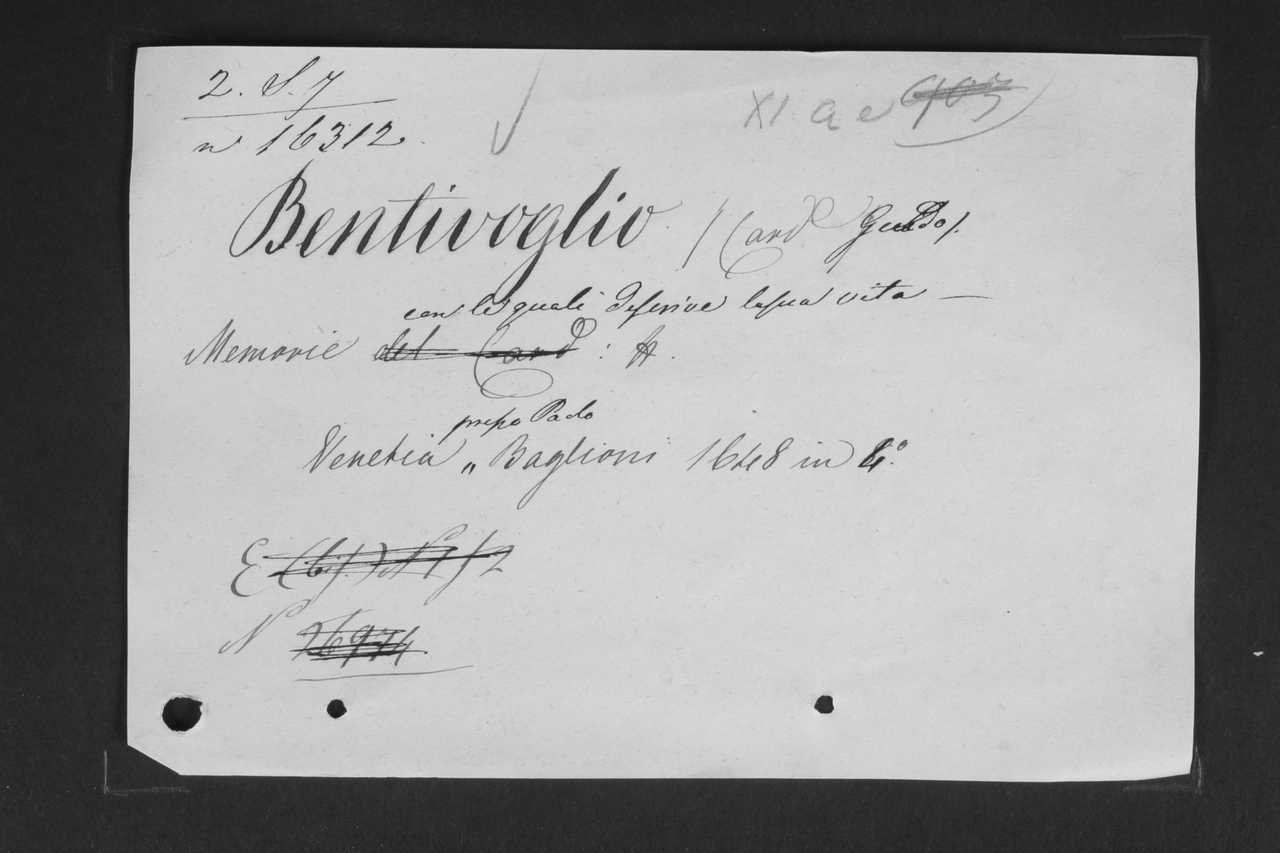 2. S. 7
XI a e 903
nº 16312.
Bentivoglio / Card.e Guido /.
con le quali descrive la sua vita —
Memorie del Card : &.
presso Paolo
Venetia „ Baglioni 1648 in 4.º
E
N 26974